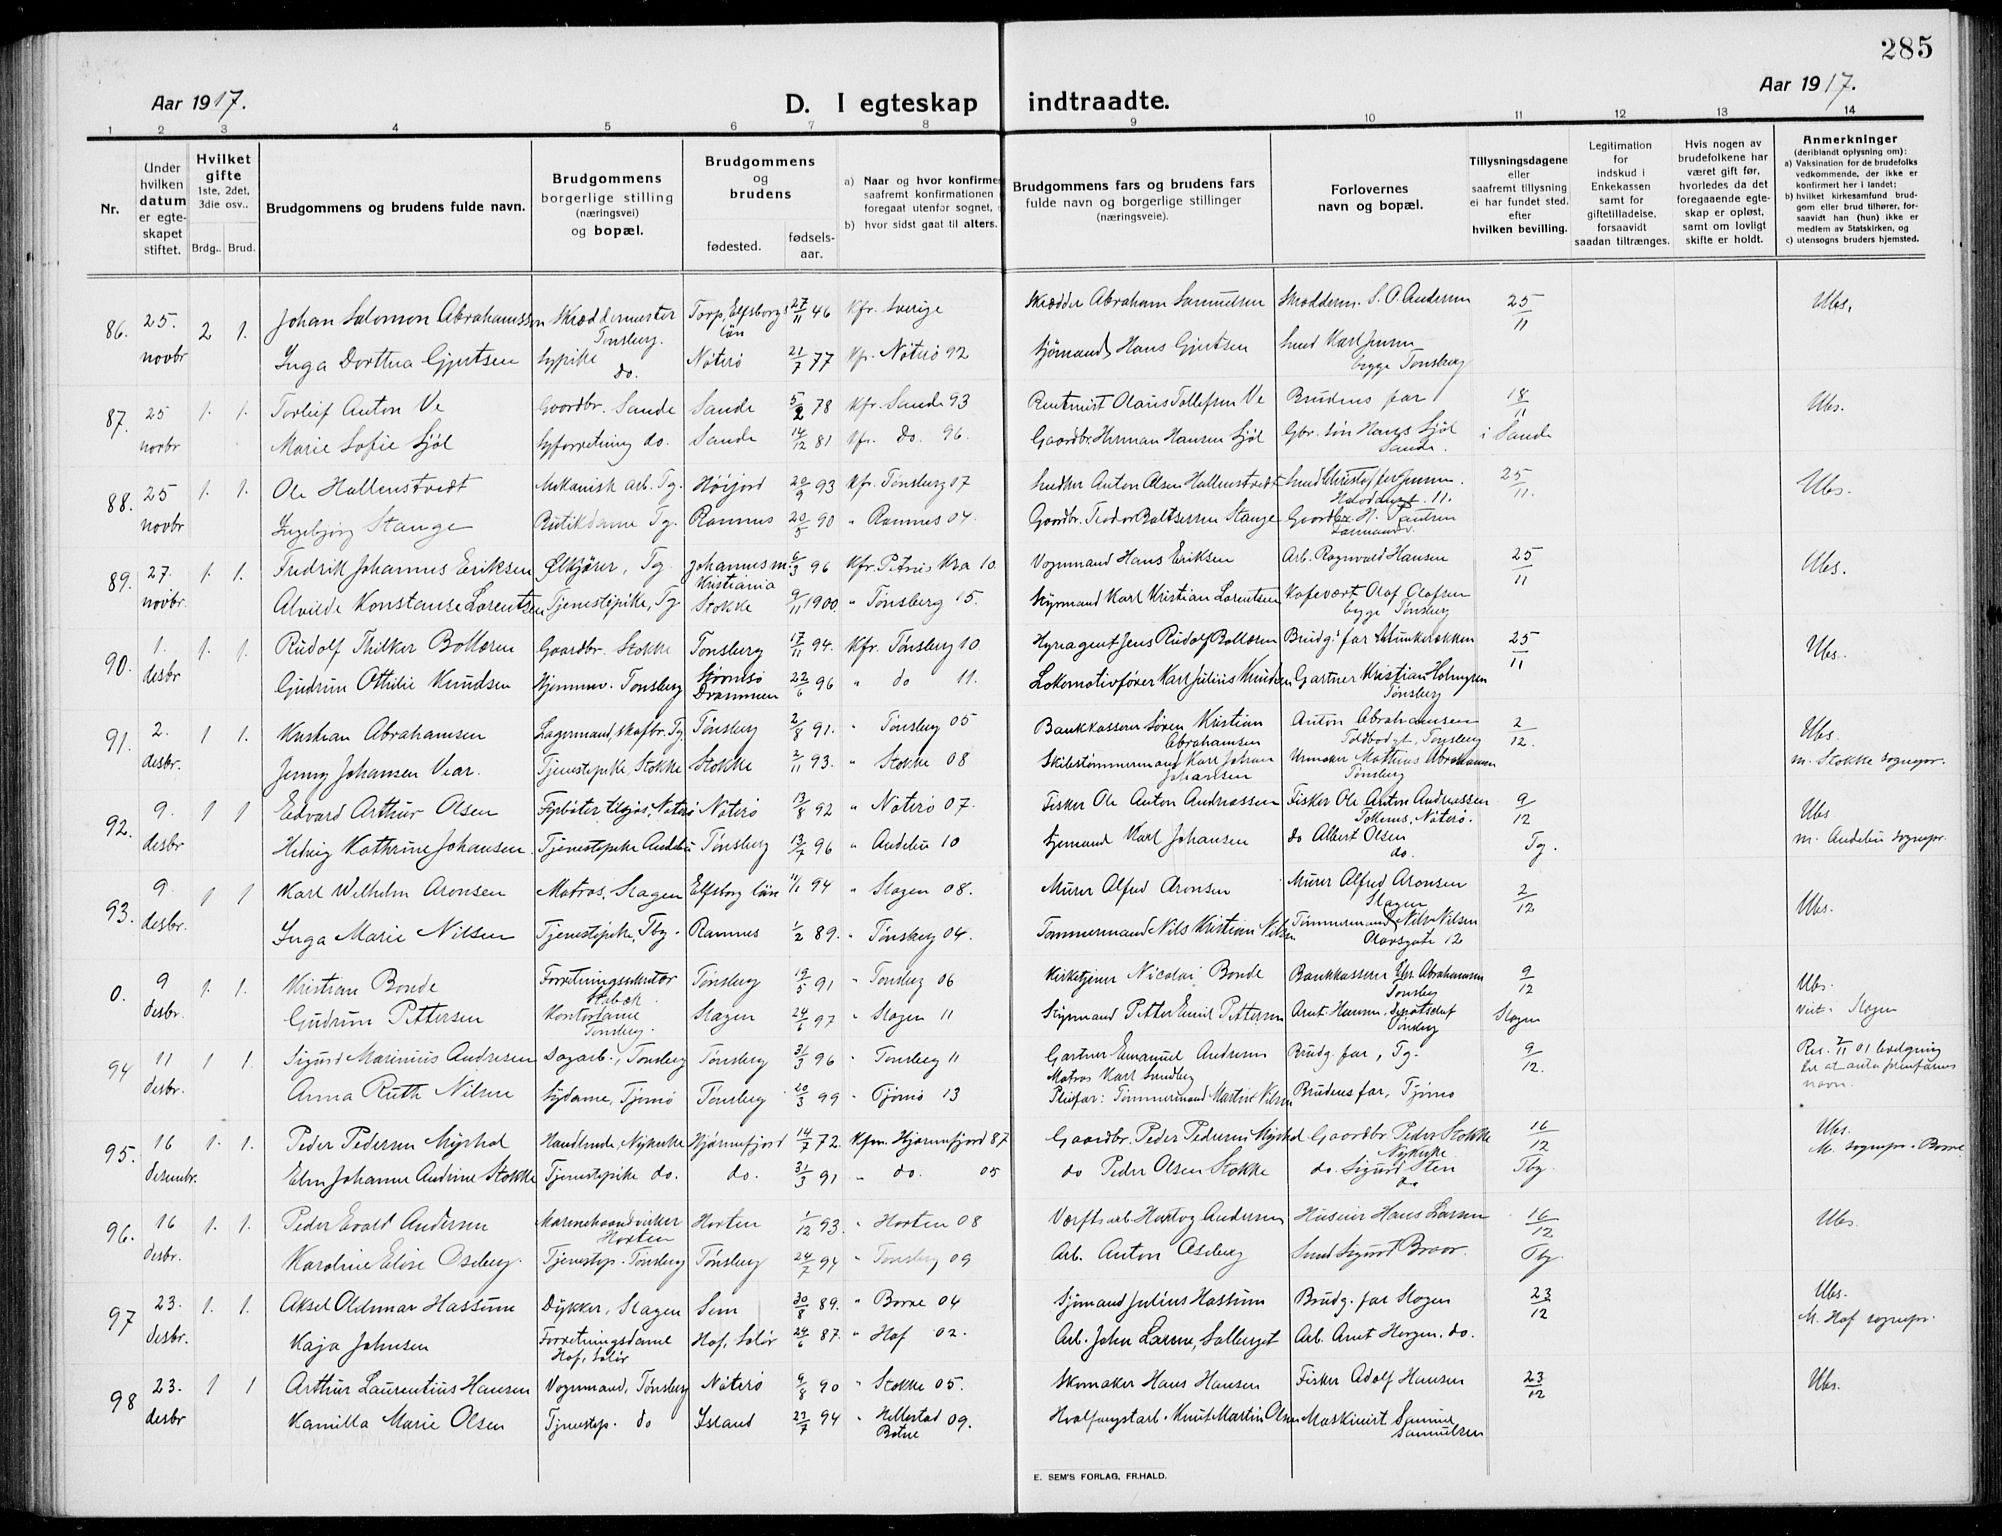 285
Aar 1917.
D. I egteskap indtraadte.
Aar 1917.
1 2 3 4 5 6 7 8 9 10 11 12 13 14
Nr.
Under hvilken datum er egteskapet stiftet.
Hvilket gifte 1ste, 2det, 3die osv..
Brdg.. Brud.
Brudgommens og brudens fulde navn.
Brudgommens borgerlige stilling (næringsvei) og bopæl.
Brudgommens og brudens
fødested. fødselsaar.
a) Naar og hvor konfirme
saafremt konfirmationen
foregaat utenfor sognet,
b) hvor sidst gaat til alters.
Brudgommens fars og brudens fars fulde navn og borgerlige stillinger (næringsveie).
Forlovernes navn og bopæl.
Tillysningsdagene eller saafremt tillysning ei har fundet sted, efter hvilken bevilling.
Legitimation for indskud i Enkekassen samt for giftetilladelse, forsaavidt saadan tiltrænges.
Hvis nogen av brudefolkene har været gift før, hvorledes da det foregaaende egteskap er opløst, samt om lovligt skifte er holdt.
Anmerkninger (deriblandt oplysning om):
a) Vaksination for de brudefolks vedkommende, der ikke er konfirmert her i landet;
b) hvilket kirkesamfund brudgom eller brud tilhører, forsaavidt han (hun) ikke er medlem av Statskirken, og
c) utensogns bruders hjemsted.
86. 25. novbr 2 1. Johan Salomon Abrahamsson Skræddermester Tønsberg. Torp, Elfsborgs län 27/11 46 Kfr. Sverige Skrædder Abraham Samuelsen Skrædderm. S. O. Andersen 25/11 Ubs.
Inga Dorthea Gjertsen Sypike do. Nøterø 21/7 77 Kfr. Nøterø 92 Sjømand Hans Gjertsen Smed Karl Jensen begge Tønsberg
87. 25 novbr 1. 1. Torleif Anton Ve Gaardbr. Sande Sande 5/2 78 Kfr. Sande 93 Rentenist Olaus Tollefsen Ve Brudens far 18/11 Ubs.
Marie Sofie Sjøl Syforretning do. Sande 14/12 81 Kfr. do. 96. Gaardbr. Herman Hansen Sjøl Gbr. søn Hans Sjøl Sande. i Sande
88. 25 novbr 1. 1. Ole Hallenstvedt Mekanisk arb. Tg. Høijord 20/9 93 Kfr. Tønsberg 07 Snedker Anton Olsen Hallenstvedt Smed Christoffer Jensen. 25/11. Ubs.
Ingebjørg Stange Butikdame Tg. Ramnes 20/5 90 " Ramnes 04. Gaardbr. Teodor Baltsersen Stange Gaardbr. H. Paulsen
89. 27. novbr. 1. 1. Fredrik Johannes Eriksen Ølkjører, Tg. Johannes m. Kristiania 6/3 96 Kfr. Petrus Kra 10. Vognmand Hans Eriksen Arb. Ragnvald Hansen 25/11 Ubs.
Alvilde Konstanse Lorentsen Tjenestepike, Tg. Stokke 9/11 1900. " Tønsberg 15. Styrmand Karl Kristian Lorentsen Kafevært Olaf Olafsen begge Tønsberg
90. 1. desbr 1. 1. Rudolf Thilker Bollæren Gaardbr. Stokke Tønsberg 17/11 94. Kfr. Tønsberg 10. Hyreagent Jens Rudolf Bollæren Brudg. far Munkerækken 25/11 Ubs.
Gudrun Ottilie Knudsen Hjemmev. Tønsberg Strømsø Drammen 22/6 96 " do 11. Lokomotivfører Karl Julius Knudsen Gartner Kristian Holmgren Tønsberg
91. 2. desbr. 1 1. Kristian Abrahamsen Lagermand, skofbr. Tg. Tønsberg 2/8 91. " Tønsberg 05 Bankkasserer Søren Kristian Abrahamsen Anton Abrahamsen Toldbodgt, Tønsberg 2/12. Ubs.
Jenny Johansen Vear. Tjenestepike, Stokke Stokke 2/11 93. " Stokke 08 Skibstømmermand Karl Johan Johansen Urmaker Mathias Abrahamsen Tønsberg m. Stokke sognepr.
92. 9. desbr 1 1 Edvard Arthur Olsen Fyrbøter tilsjøs, Nøterø Nøterø 13/8 92 " Nøterø 07. Fisker Ole Anton Andreassen Fisker Ole Anton Andreassen Tokenes, Nøterø. 9/12 Ubs
Hedvig Kathrine Johansen. Tjenestepike Andebu Tønsberg 13/7 96 " Andebu 10 Sjømand Karl Johansen do Albert Olsen do. Tg. m. Andebu sognepr.
93. 9. desbr. 1 1 Karl Wilhelm Aronsen Matros, Slagen Elfsborg län 11/1 94 " Slagen 08. Murer Alfred Aronsen Murer Alfred Aronsen Slagen 2/12 Ubs.
Inga Marie Nilsen Tjenestepike, Tbg. Ramnes 1/2 89. " Tønsberg 04. Tømmermand Nils Kristian Nilsen Tømmermand Nils Nilsen Olavsgate 12
0. 9 desbr. 1. 1. Kristian Bonde Forretningssekretær Stabæk. Tønsberg 19/5 91 " Tønsberg 06 Kirketjener Nicolai Bonde Bankkasserer Chr. Abrahamsen Tønsberg 9/12 Ubs.
Gudrun Pettersen Kontordame Tønsberg. Slagen 24/6 97 " Slagen 11 Styrmand Petter Emil Pettersen Arnt Hansen, Tønsberg Slagen viet i Slagen
94 11 desbr. 1 1 Sigurd Marinius Andresen Dagarb., Tønsberg Tønsberg 3/3 96 " Tønsberg 11 Gartner Emanuel Andresen Brudg. far, Tg. 9/12. Res. 2/11 01 bevilgning til at anta pleiefarens navn.
Anna Ruth Nilsen Sydame, Tjømø Tønsberg 20/3 99 " Tjømø 13 Matros Karl Sundberg Pleiefar: Tømmermand Martin Nilsen Brudens far, Tjømø
95. 16 desembr. 1. 1. Peder Pedersen Myrhol Handlende, Nykirke Hjørnefjord 14/7 72. Kfm. Hjørnefjord 87 Gaardbr. Peder Pedersen Myrhol Gaardbr. Peder Stokke Nykirke 16/12 Ubs.
Elen Johanne Andrine Stokke Tjenestepike do. do. 31/3 91 " do. 05 do Peder Olsen Stokke do. Sigurd Sten do Tbg. M. sognepr. i Borre
96. 16 desbr. 1. 1. Peder Evald Andersen Marinehaandverker Horten Horten 1/12 93. " Horten 08 Værftsarb. Hartvig Andersen Huseier Hans Larsen 16/12 Ubs.
Karoline Elise Oseberg. Tjenestep. Tønsberg Tønsberg 24/7 94 " Tønsberg 09 Arb. Anton Oseberg Smed Sigurd Braar. Tbg.
97 23. desbr. 1. 1. Aksel Oldemar Hassum Dykker, Slagen Sem 30/8 89. " Borre 04 Sjømand Julius Hassum Brudg. far Slagen 23/12 Ubs.
Kaja Johnsen Forretningsdame Hof, Solør Hof, Solør 24/6 87. " Hof 02. Arb. John Larsen, Solberget Arb. Arnt Horgen. do. M. Hof sognepr.
98 23. desbr 1 1 Arthur Laurentius Hansen Vognmand, Tønsberg Nøterø 9/8 90 " Stokke 05. Skomaker Hans Hansen Fisker Adolf Hansen 23/12 Ubs.
Kamilla Marie Olsen Tjenestep. do Island 23/7 94 " Hillestad Botne 09. Hvalfangstarb. Knut Martin Olsen Maskinist Samuelsen
E. SEM'S FORLAG, FR.HALD.